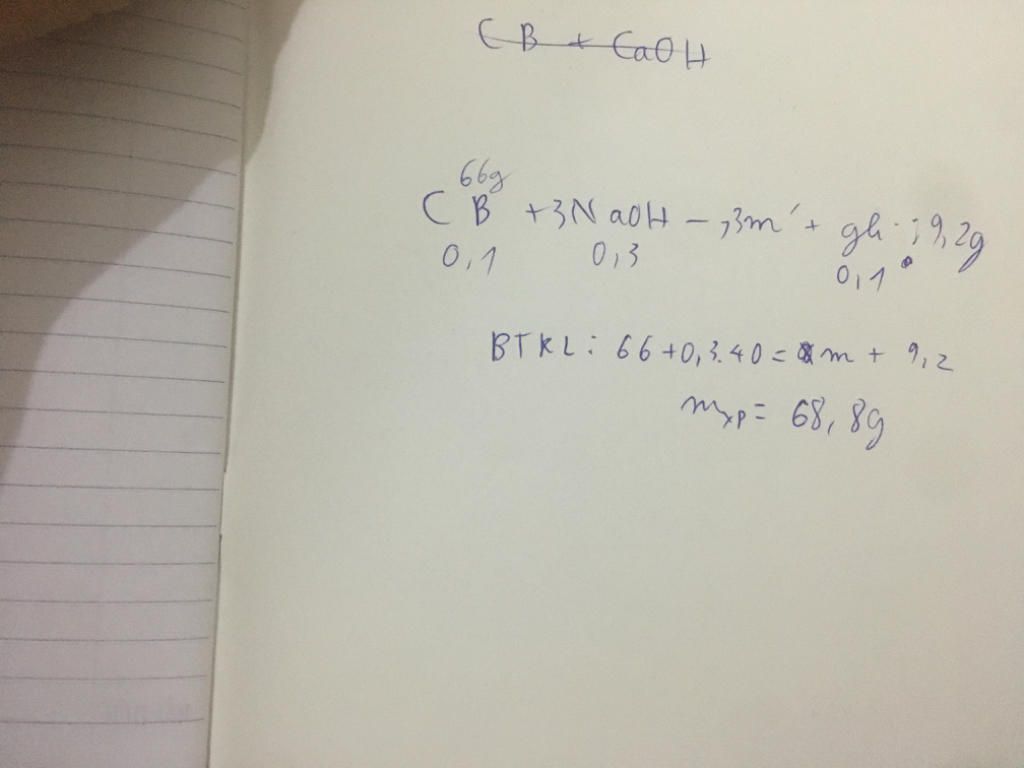 C B + CaOH
66g
C B + 3NaOH → 3m' + gli ; 9,2g
0,1 0,3 0,1
BTKL: 66 + 0,3.40 = m + 9,2
mxp = 68,8g